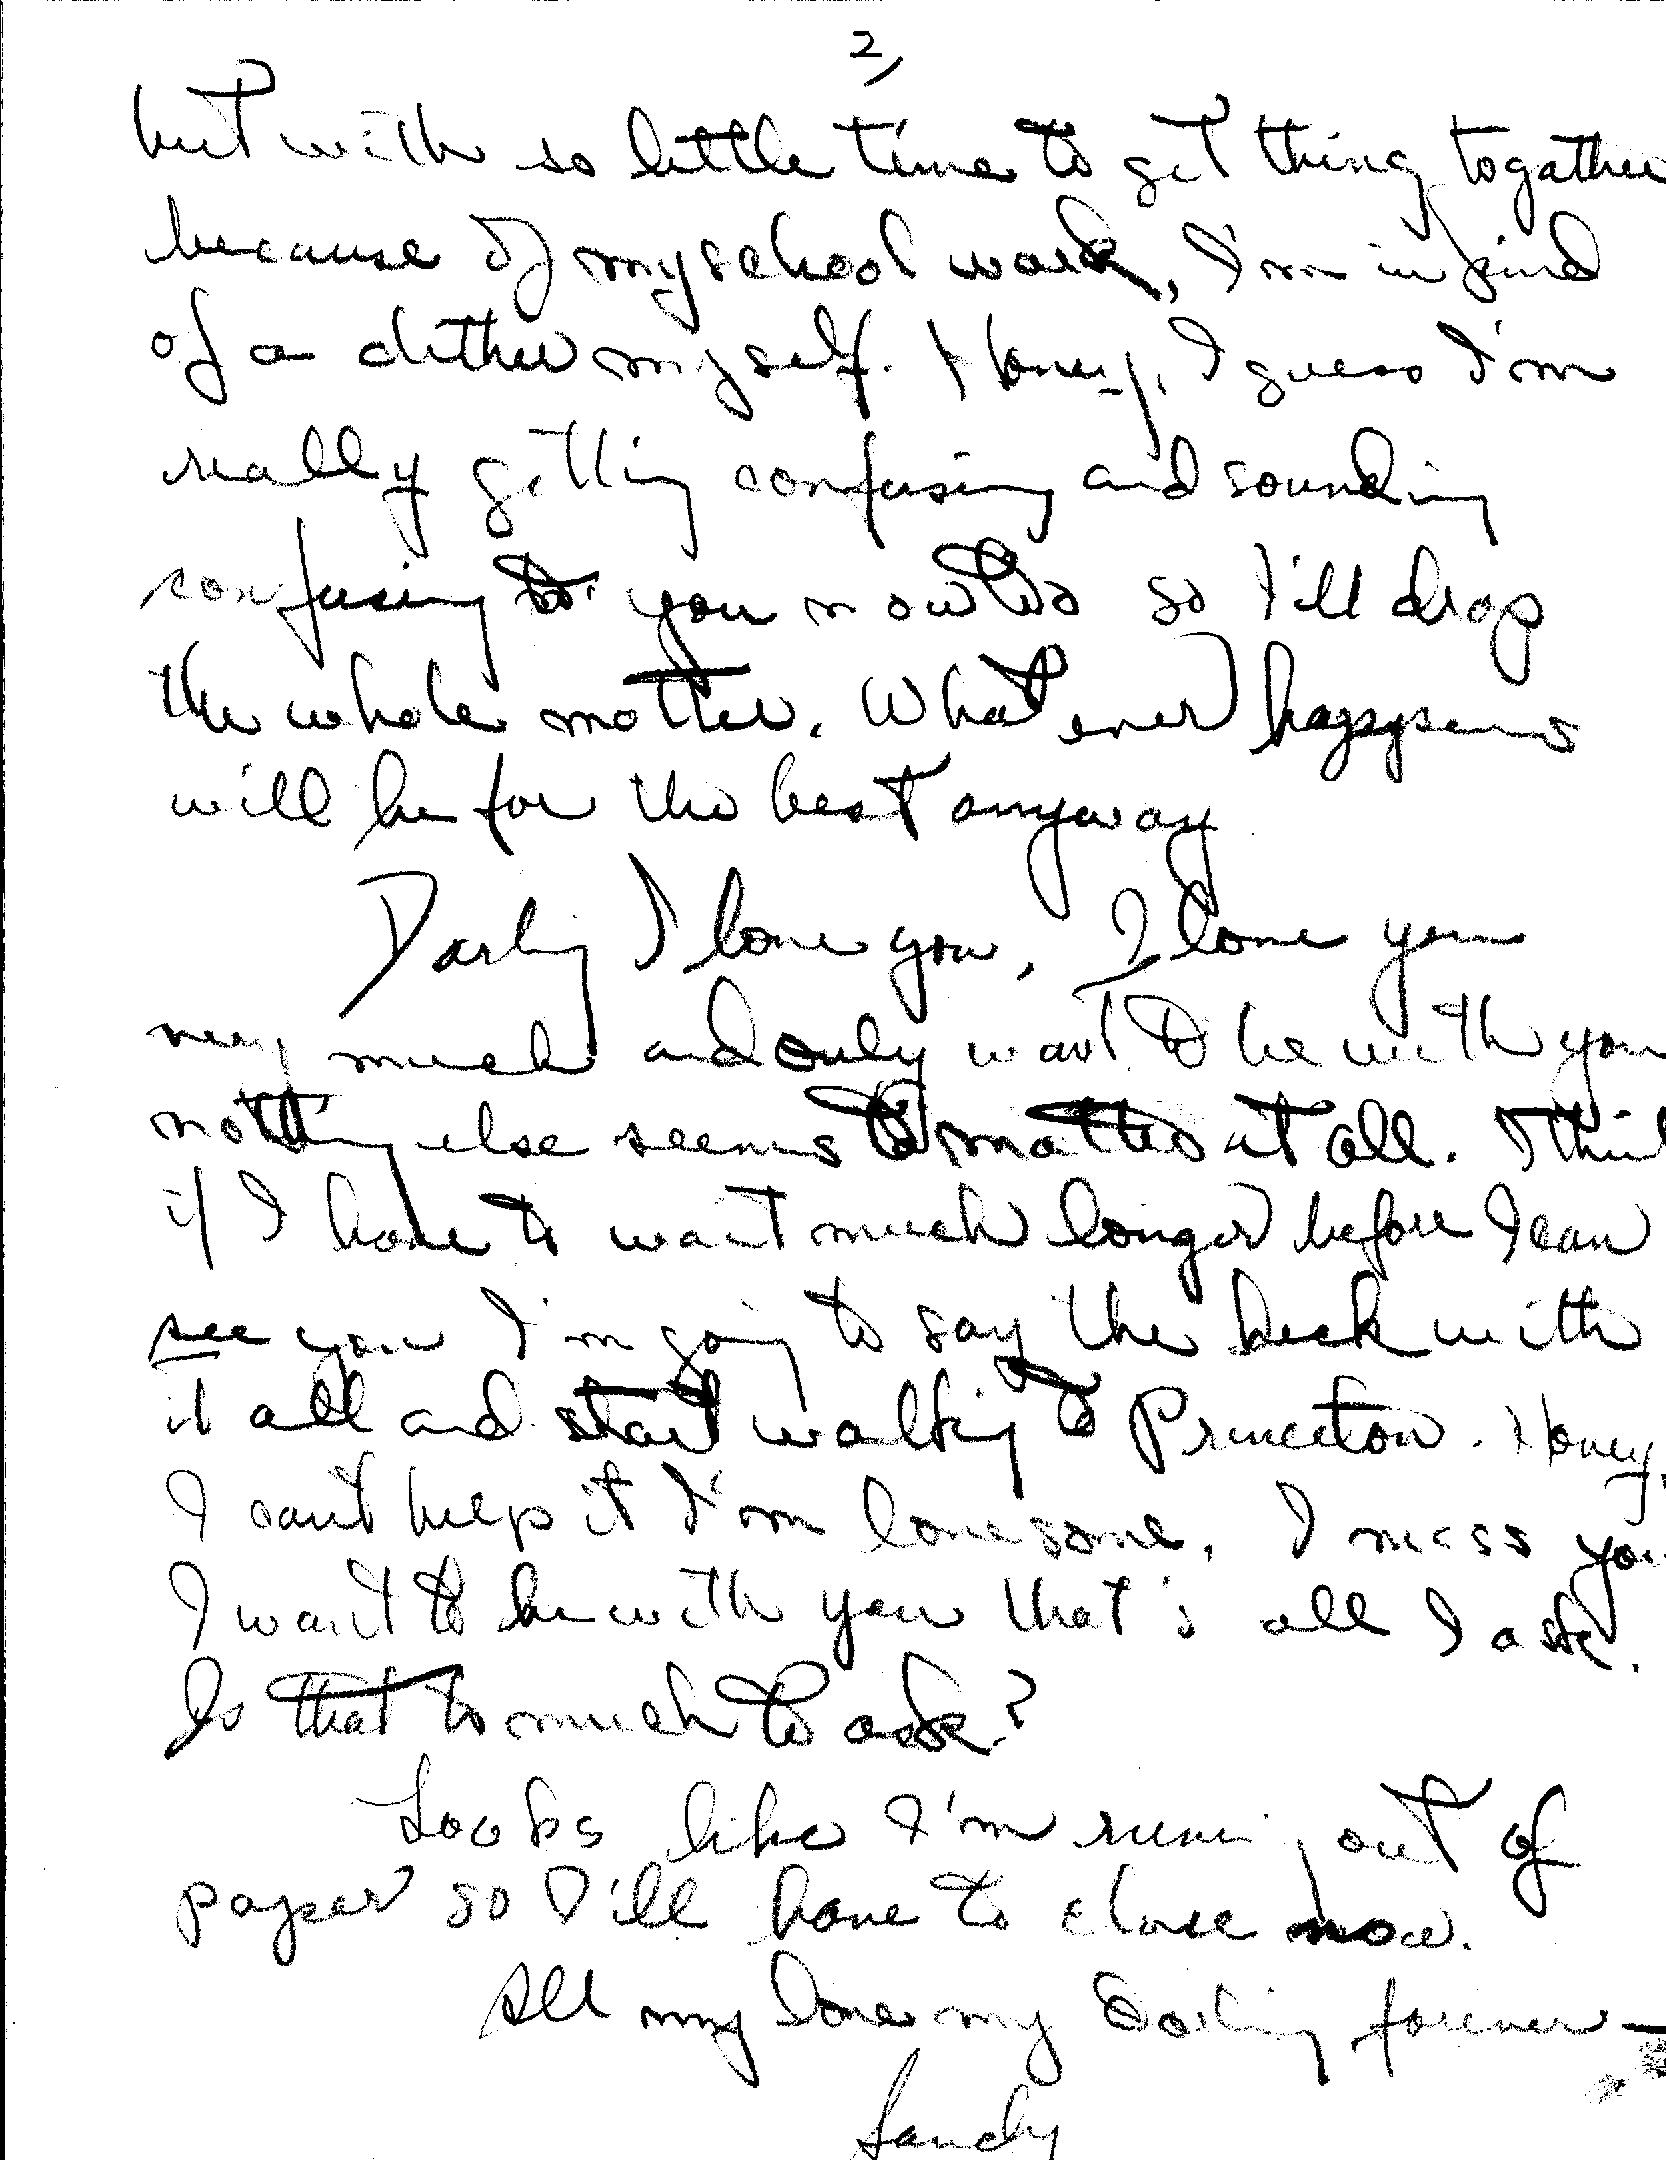 2,
but with so little time to get thing togather
because of my school work, I'm in kind
of a dither myself. Honey, I guess I'm
really getting confusing and sounding
confusing to you now too so I'll drop
the whole matter. What ever happens
will be for the best anyway
Darling I love you, I love you
very much and only want to be with you
nothing else seems to matter at all. I think
if I have to wait much longer before I can
see you I'm going to say the heck with
it all and start walking to Princeton. Honey,
I can't help it I'm lonesome, I miss you
I want to be with you that's all I ask.
Is that to much to ask?
Looks like I'm runing out of
paper so I'll have to close now.
All my love my Darling forever—
Sandy